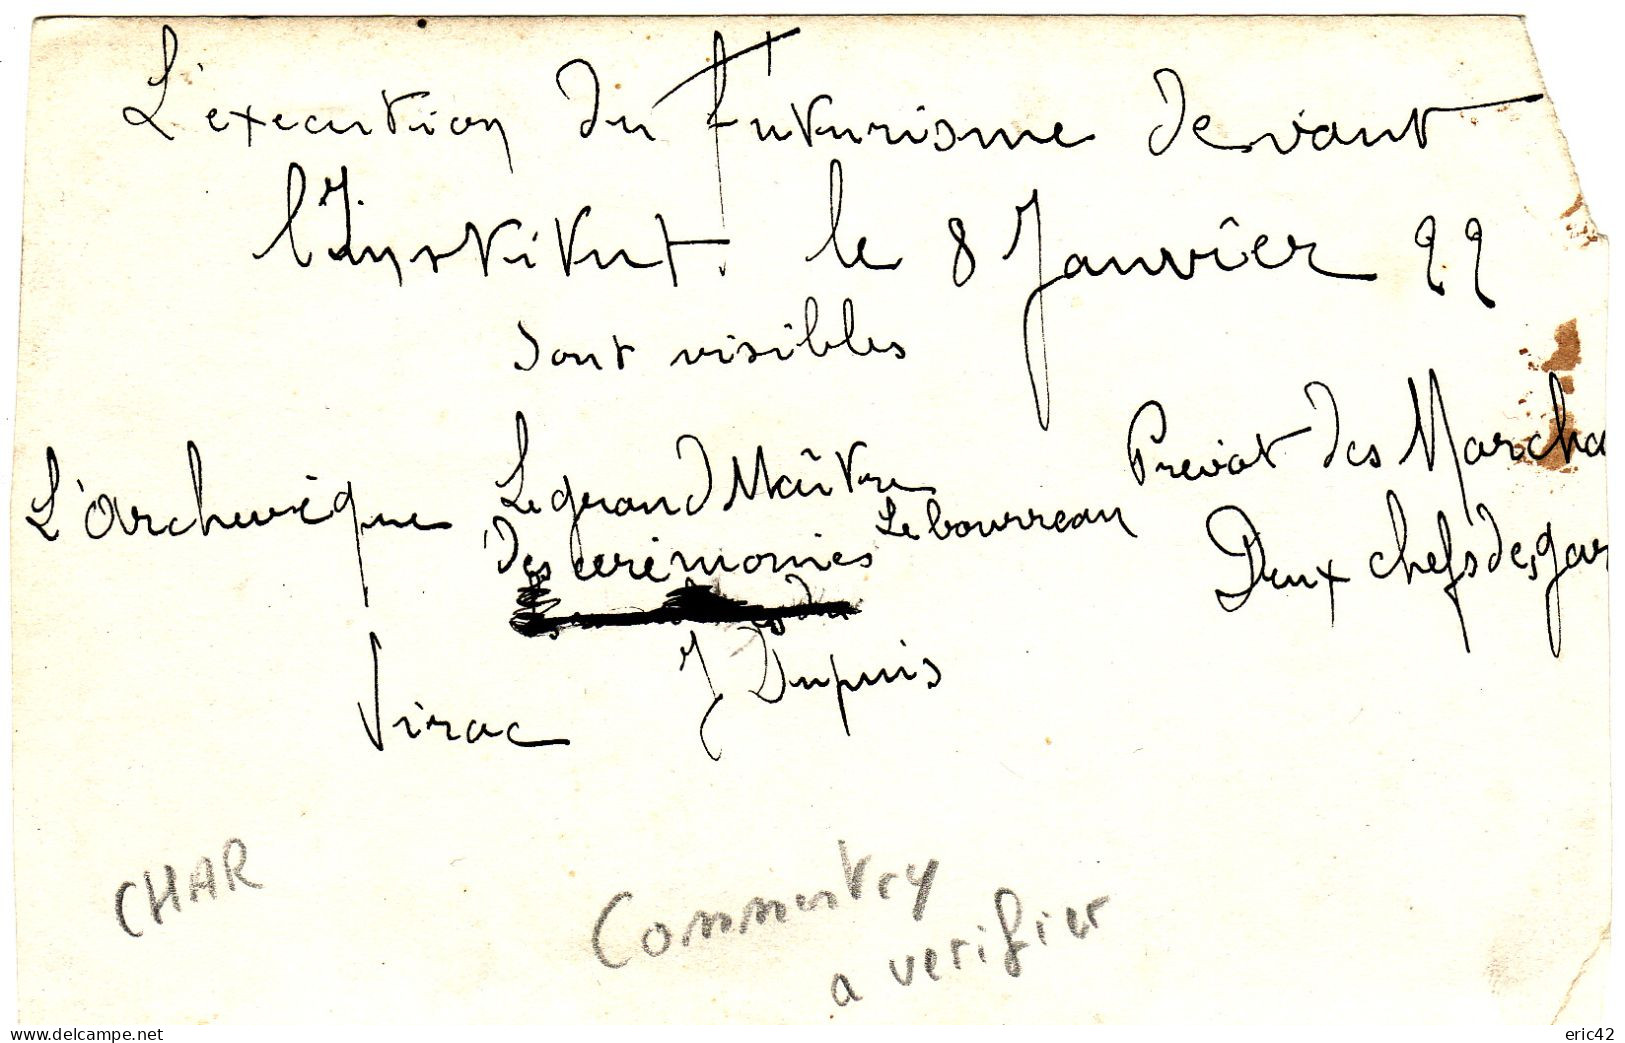 L'execution du futurisme devant
l'Institut. le 8 Janvier 22
sont visibles
L'Archeveque Le grand Maître des ceremonies Le bourreau Prevot des Marcha
Deux chefs des gar
Virac J Dupuis
CHAR
Commentry
a verifier
www.delcampe.net
eric42